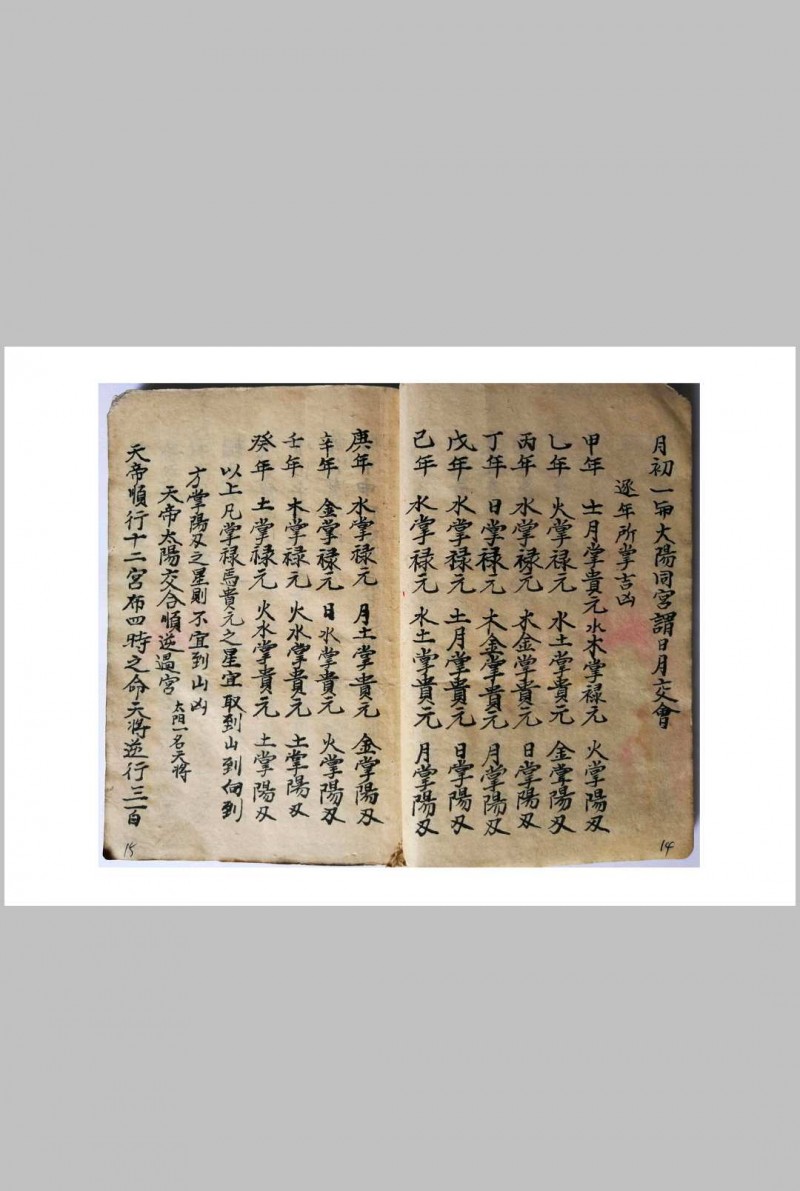 月初一百大陽同宮謂日月交會
逐年所掌吉凶
甲年 士月掌貴元 水木掌禄元 火掌陽刄
乙年 火掌禄元 水土掌貴元 金掌陽刄
丙年 水掌禄元 木金掌貴元 日掌陽刄
丁年 日掌禄元 木金掌貴元 月掌陽刄
戊年 水掌禄元 土月掌貴元 日掌陽刄
己年 水掌禄元 水土掌貴元 月掌陽刄
14
庚年 水掌禄元 月土掌貴元 金掌陽刄
辛年 金掌禄元 日水掌貴元 火掌陽刄
壬年 木掌禄元 火水掌貴元 土掌陽刄
癸年 土掌禄元 火水掌貴元 土掌陽刄
以上凡掌禄馬貴元之星宜取到山到向到
方掌陽刄之星則不宜到山凶
天帝太陽交合順逆過宮 太阳一名天將
天帝順行十二宮布四時之命天將逆行三百
15